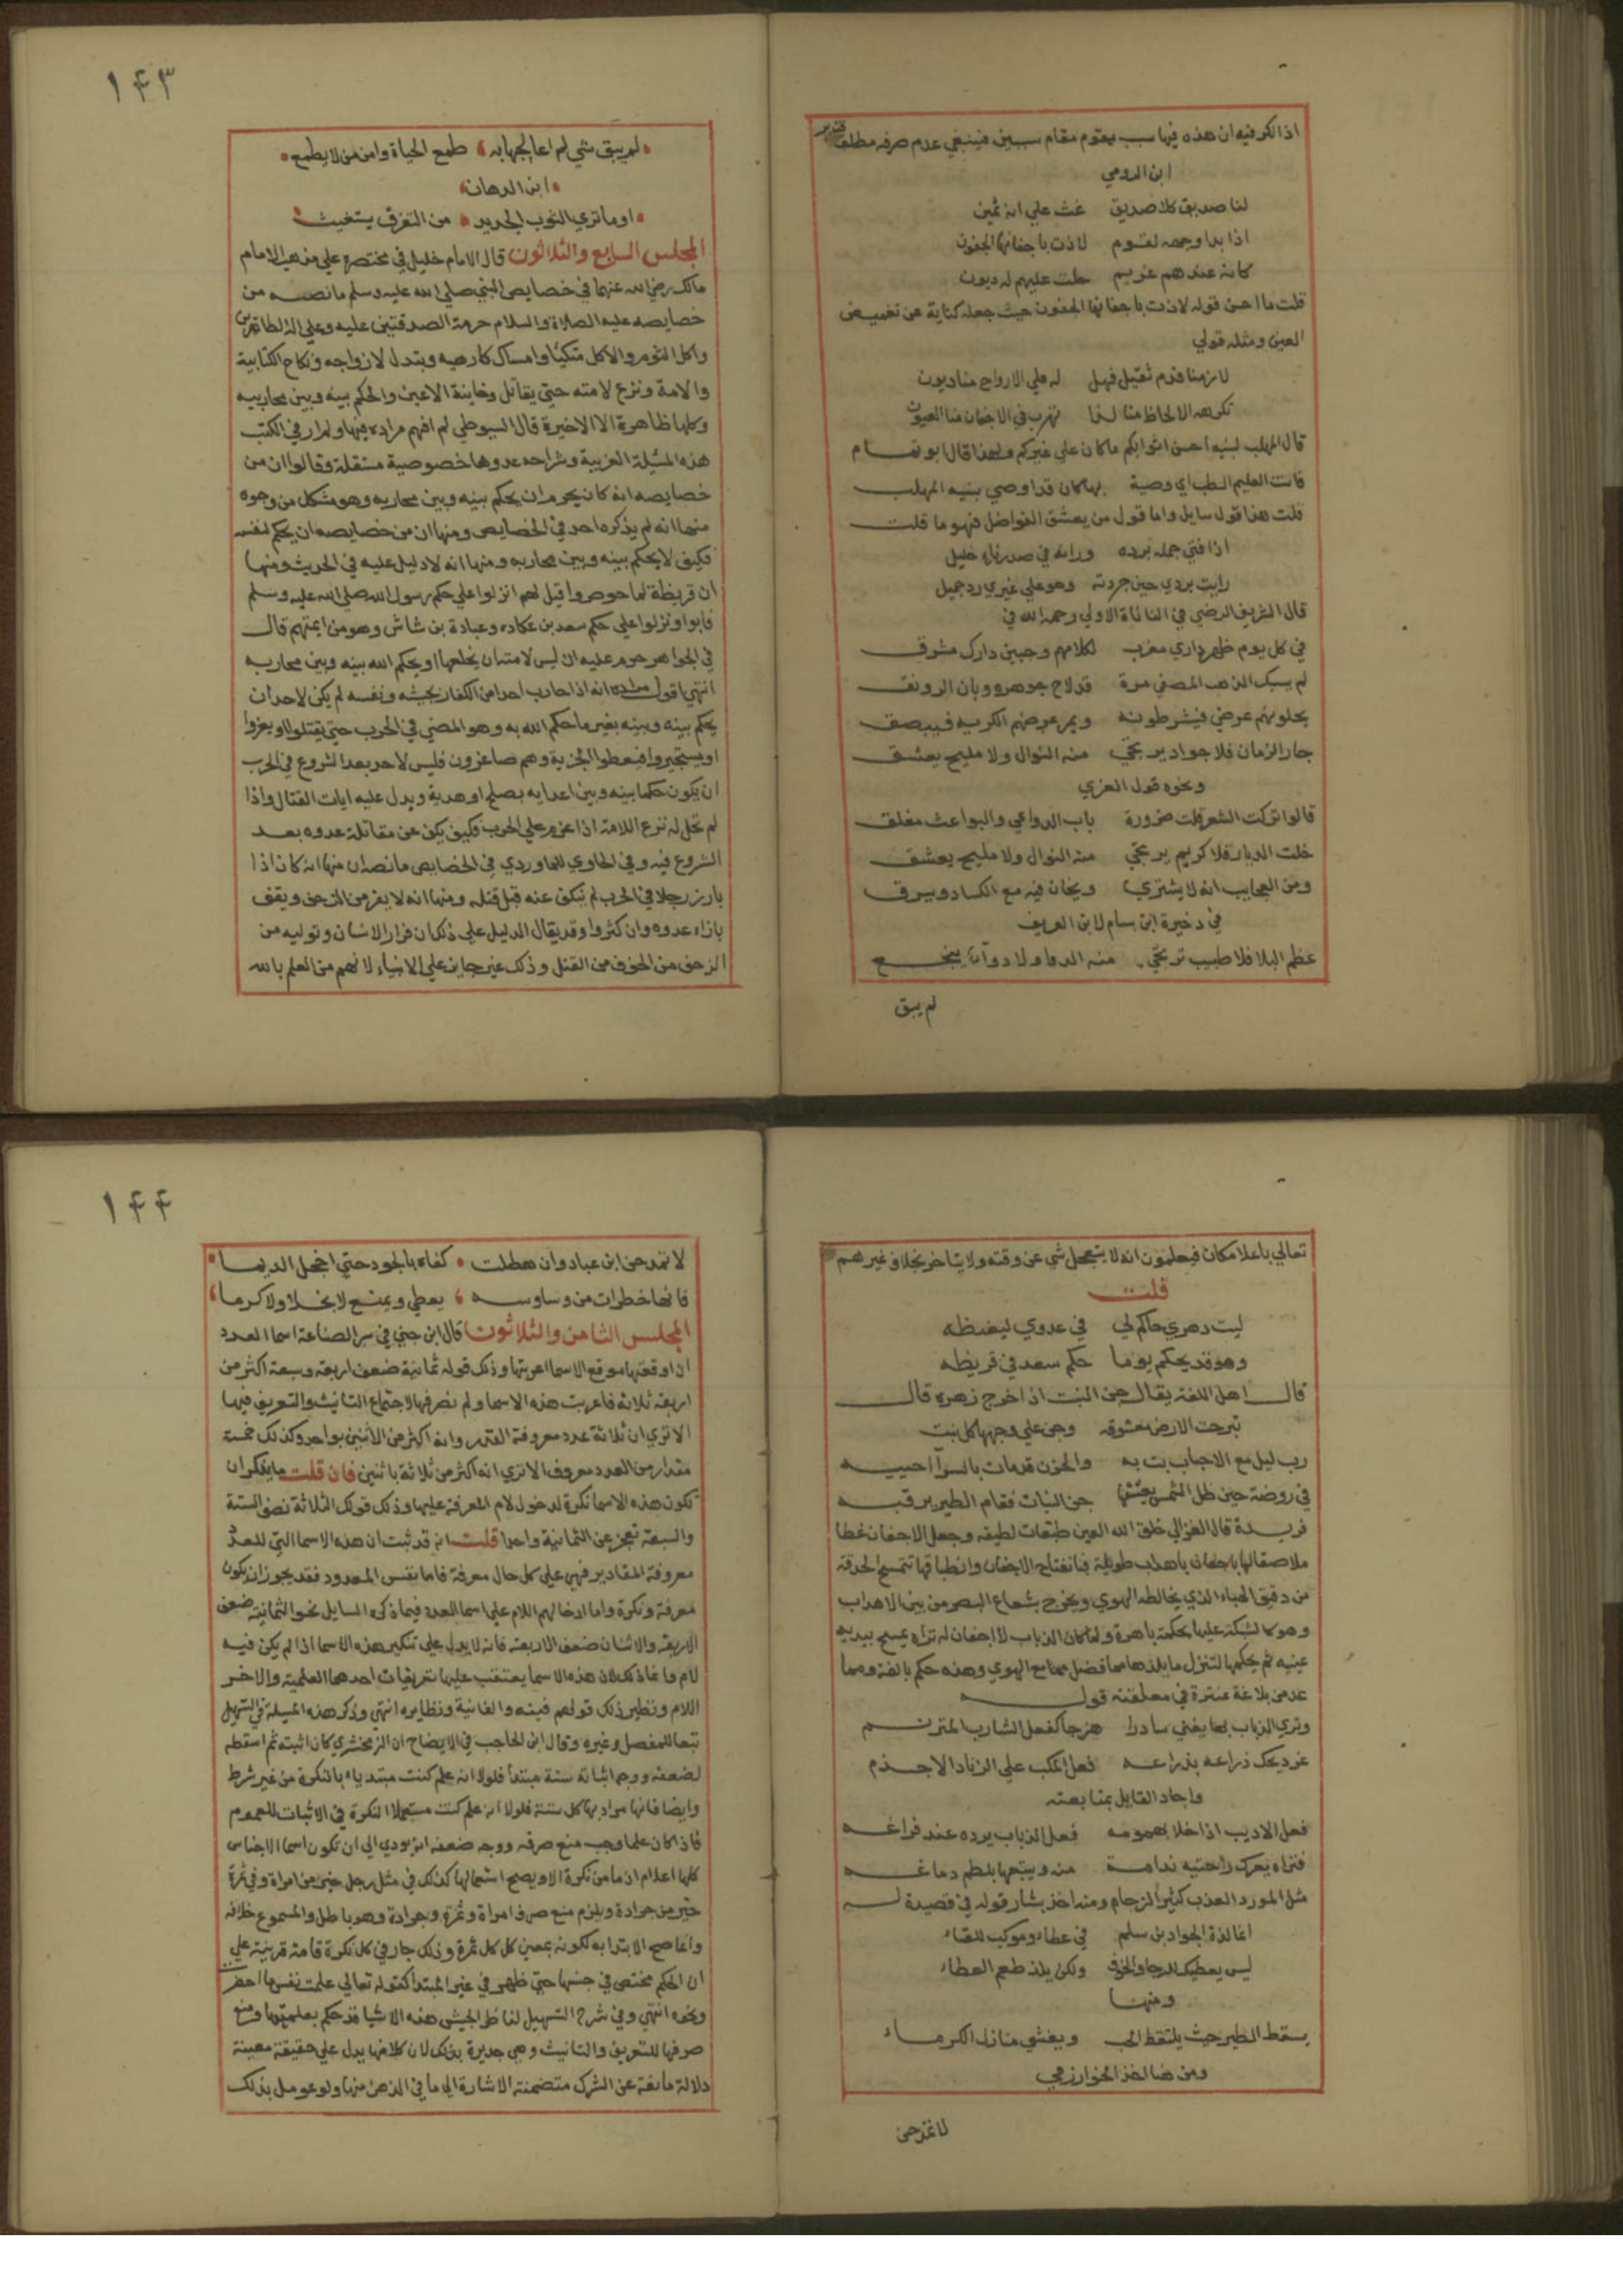 اذا نكر فيه ان هذه فيها سبب يقوم مقام سببين فينبغي عدم صرفه مطلقا فتدبر
ابن الرومي
لنا صديق كلا صديق غث على انه ثمين
اذا بدا وجهه لقوم لاذت باجفانها الجفون
كانه عندهم غريم حلت عليهم له ديون
قلت ما احسن قوله لاذت باجفانها الجفون حيث جعله كناية عن تغميض
العين ومثله قولي
لازمنا فدم ثقيل فهل له علي الارواح منا ديون
تكرهه الالحاظ منا لذا تهرب في الاجفان منا العيون
قال المهلب لبنيه احسن اثوابكم ما كان على غيركم ولهذا قال ابو تمام
فانت العليم الطب اي وصية بها كان قد اوصي بنيه المهلب
قلت هذا قول سايل واما قول من يعشق الفواضل فهو ما قلت
اذا فتي جمله برده ورانه في صدر ناد خليل
رايت بردي حين جردته وهو علي غيري رد جميل
قال الشريف الرضي في النائاة الاولي رحمه الله في
في كل يوم ظهر داري مغرب لكلامهم وجبين دارك مشرق
لم يسبك الذهب المصفي مرة قد لاح جوهره وبان الرونق
يحلو لهم عرضي فيشرطونه ويمر عرضهم الكريه فيبصق
جار الزمان فلا جواد يرتجي منه النوال ولا مليح يعشق
ونحوه قول الغزي
قالوا تركت الشعر قلت ضرورة باب الدواعي والبواعث مغلق
خلت الديار فلا كريم يرتجي منه النوال ولا مليح يعشق
ومن العجايب انه لا يشتري ويخان فيه مع الكساد ويسرق
في ذخيرة ابن بسام لابن العريف
عظم البلا فلا طبيب ترتجي منه الدوا ولا دواء ينجع
لم يبق
١٤٣
لم يبق شي لم اعالجها به طمع الحياة وامن من لا يطمع
ابن الدهان
اوما تري الثوب الجديد من التفرق يستغيث
المجلس السابع والثلاثون قال الامام خليل في مختصره علي مذهب الامام
مالك رضي الله عنهما في خصايص النبي صلي الله عليه وسلم ما نصه من
خصايصه عليه الصلاة والسلام حرمة الصدقتين عليه وعلي اله
واكل الثوم والاكل متكيا وامساك كارهيه وتبدل لازواجه ونكاح الكتابية
والامة ونزع لامته حتي يقاتل وخاينة الاعين والحكم بينه وبين محاربيه
وكلها ظاهرة الا الاخيرة قال السيوطي لم افهم مراده فيها ولم ار في الكتب
هذه المسيلة الغريبة وشراحه عدوها خصوصية مستقلة وقالوا ان من
خصايصه انه كان يحرم ان يحكم بينه وبين محاربه وهو مشكل من وجوه
منها انه لم يذكره احد في الخصايص ومنها ان من خصايصه ان يحكم لنفسه
فكيف لا يحكم بينه وبين محاربه ومنها انه لا دليل عليه في الحديث ومنها
ان قريظة لما حوصروا قيل لهم انزلوا علي حكم رسول الله صلي الله عليه وسلم
فابوا ونزلوا علي حكم سعد بن عكاده وعبادة بن شاش وهو من ايمتهم قال
في الجواهر حرم عليه ان لبس لامته ان يخلعها او يحكم الله بينه وبين محاربه
انتهي اقول مراده انه اذا حارب احدا من الكفار بجيشه ونفسه لم يكن لاحد ان
يحكم بينه وبينه بغير ما حكم الله به وهو المضي في الحرب حتي يقتلوا او يفروا
او يستجيروا فيعطوا الجزية وهم صاغرون فليس لاحد بعد الشروع في الحرب
ان يكون حكما بينه وبين اعدايه بصلح او هدية ويدل عليه ايات القتال واذا
لم تحل له نزع اللامة اذا عزم علي الحرب فكيف يكف عن مقاتلة عدوه بعد
الشروع فيه وفي الحاوي للماوردي في الخصايص ما نصه ان منها انه كان اذا
بارز رجلا في الحرب لم ينكف عنه قبل قتله ومنها انه لا يفر من الزحف ويقف
بازاء عدوه وان كثروا وقد يقال الدليل علي ذلك ان فرار الانسان وتوليه من
الزحف من الخوف من القتل وذلك غير جايز علي الانبياء لانهم من العلم بالله
تعالي باعلا مكان فيعلمون انه لا يتعجل شي عن وقته ولا يتاخر بخلاف غيرهم
قلت
ليت دهري حاكم لي في عدوي ليغيظه
وهو قد يحكم يوما حكم سعد في قريظه
قال اهل اللغة يقال جن النبت اذا اخرج زهره قال
تبرجت الارض معشوقه وجن علي وجهها كل نبت
رب ليل مع الاحباب بت به والحزن قد مات بالسرآ احييه
في روضة حين ظل الشمس جن النبات فقام الطير يرقيه
فريدة قال الغزالي خلق الله العين طبقات لطيفه وجعل الاجفان غطا
ملاصقا لها باجفان باهداب طويلة فبانفتاح الاجفان وانطباقها تتمسح الحدقة
من دقيق الهباء الذي يخالطه الهوي ويخرج شعاع البصر من بين الاهداب
وهو كالشبكة عليها بحكمة باهرة ولما كان الذباب لا اجفان له تراه يمسح بيديه
عينيه ثم يحكهما لتنزل ما بلذهامما فضل مما مع الهوي وهذه حكم بالغة ومما
عد من بلاغة عنترة في معلقته قوله
وتري الذباب بها يغني سادرا هزجا كفعل الشارب المترنم
غرد يحك ذراعه بذراعه فعل المكب علي الزناد الاجذم
واجاد القايل بمتابعته
فعل الاديب اذا خلا بهمومه فعل الذباب يرده عند فراغه
فتراه يعرك راحتيه ندامة منه ويتبعها بلطم دماغه
مثل المورد العذب كثير الزحام ومنه اخذ بشار قوله في قصيدة له
انما لذة الجواد بن سلم في عطاء وموكب للقاء
ليس يعطيك للرجا والخوف ولكن يلذ طعم العطاء
ومنها
يسقط الطير حيث يلتقط الحب ويغشي منازل الكرماء
ومن هنا اخذ الخوارزمي
لا تمدحن
١٤٤
لا تمدحن ابن عباد وان هطلت كفاه بالجود حتي اخجل الديما
فانها خطرات من وساوسه يعطي ويمنع لا بخلا ولا كرما
المجلس الثامن والثلاثون قال ابن جني في سر الصناعة اسما العدد
ان اوقعتها موقع الاسما اعربتها وذلك قوله ثمانية ضعف اربعة وسبعة اكثر من
اربعة ثلاثة فاعربت هذه الاسما ولم نصرفها لاجتماع التانيث والتعريف فيها
الا تري ان ثلاثة عدد معروفة القدر وانه اكثر من الاثنين بواحد وكذلك خمسة
مقدار من العدد معروف الا تري انه اكثر من ثلاثة باثنين فان قلت ما ينكر ان
تكون هذه الاسما نكرة لدخول لام المعرفة عليها وذلك قولك الثلاثة نصف الستة
والسبعة تعجز عن الثمانية واحدا قلت انه قد ثبت ان هذه الاسما التي للعدد
معروفة المقادير فهي علي كل حال معرفة فاما نفس المعدود فقد يجوز ان يكون
معرفة ونكرة واما ادخالهم اللام علي اسما العدد فيما ذكره السايل نحو الثمانية ضعف
الاربعة والاثنان ضعف الاربعة فانه لا يدل علي تنكير هذه الاسما اذا لم يكن فيه
لام وانما ذلك لان هذه الاسما يعتقب عليها تعريفات احدهما العلمية والاخر
اللام ونظير ذلك قولهم فينة والفانية ونظايره انتهي وذكر هذه المسيلة في التسهيل
تبعا للمفصل وغيره وقال ابن الحاجب في الايضاح ان الزمخشري كان اثبته ثم اسقطه
لضعفه ووجه اثباته ستة مبتدأ فلولا انه علم كنت مبتديا بالنكرة من غير شرط
وايضا فانها مراد بها كل ستة فلولا انه علم كنت مستعملا النكرة في الاثبات للعموم
فاذا كان علما وجب منع صرفه ووجه ضعفه انه يودي الي ان تكون اسما الاجناس
كلها اعلام اذ ما من نكرة الا ويصح استعمالها كذلك في مثل رجل خير من امراة وفي ثمرة
خير من جرادة ويلزم منع صرف امراة وثمرة وجرادة وهو باطل والمسموع خلافه
وانما صح الابتدا به لكونه بمعني كل كل ثمرة وذلك جار في كل نكرة قامت قرينة علي
ان الحكم مختص في جنسها حتي ظهر في غير المبتدا كقوله تعالي علمت نفس ما احضرت
ونحوه انتهي وفي شرح التسهيل لناظر الجيش هذه الاشيا قد حكم بعلميتها ومنع
صرفها للتعريف والتانيث وهي جديرة بذلك لان كلا منها يدل علي حقيقة معينة
دلالة مانعة عن الشرك متضمنة الاشارة الي ما في الذهن منها ولو عومل بذلك